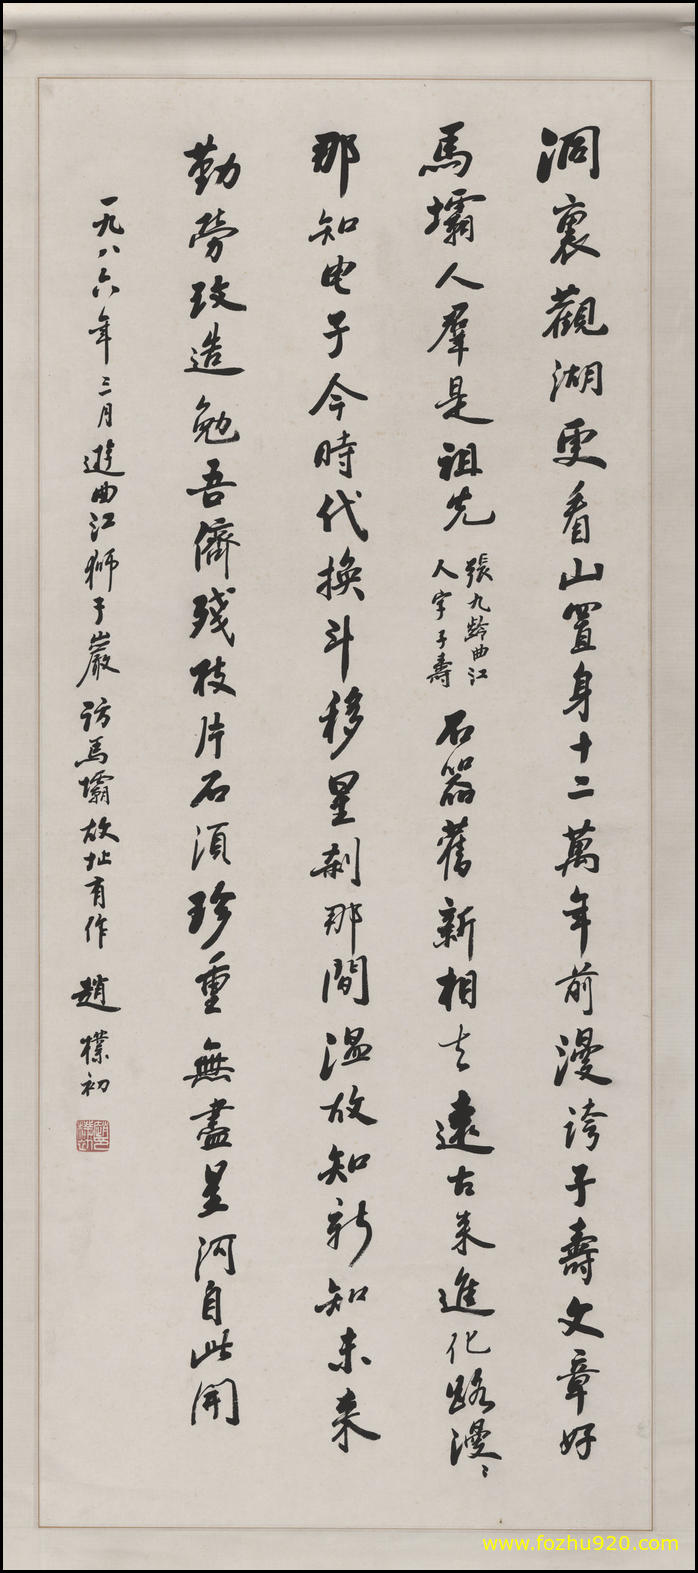 洞裏觀湖更看山置身十二萬年前漫誇子壽文章好
馬壩人羣是祖先
張九齡曲江
人字子壽
石器舊新相去遠古來進化路漫〻
那知电子今時代換斗移星剎那間温故知新知未来
勤勞改造勉吾儕殘枝片石須珍重無盡星河自此開
一九八六年三月遊曲江獅子巖訪馬壩故址有作 趙樸初
www.fozhu920.com